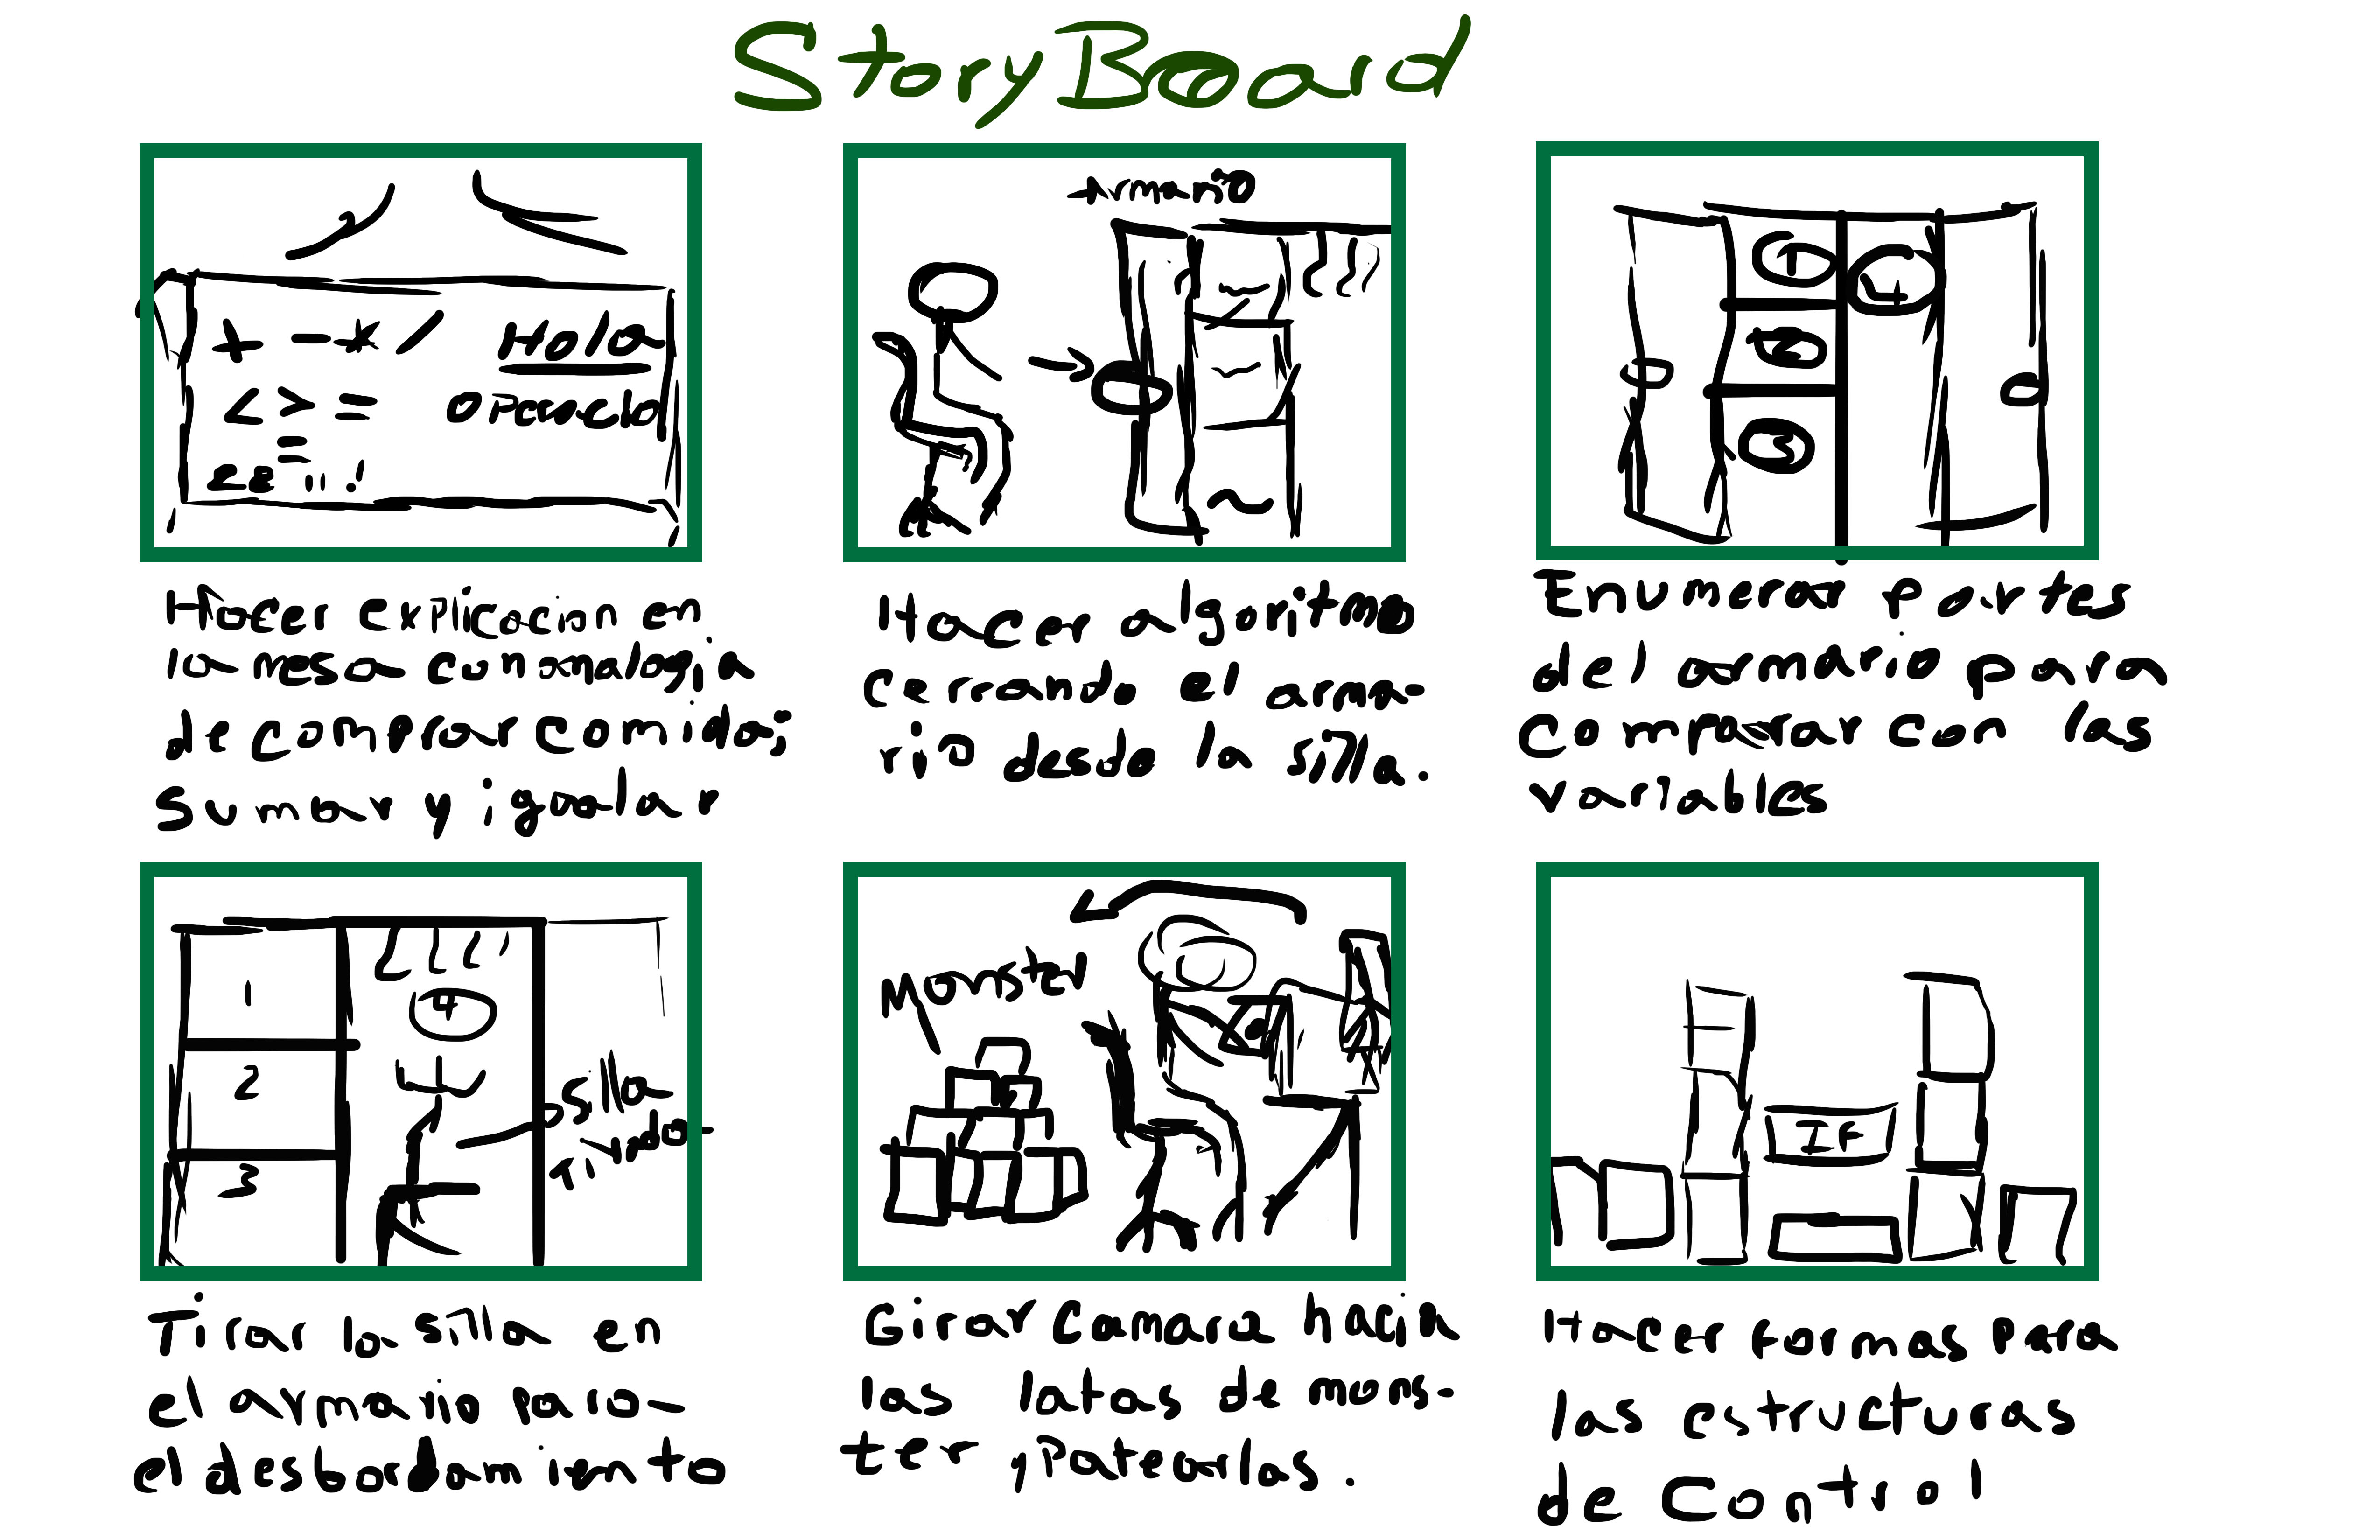 StoryBoard
+ - * / Hola
< > = o Pancho
!
Hacer explicacion en
la mesa con analogia
de comprar comida;
Sumar y igualar
Armario
Hacer algoritmo
cerrando el arma-
rio desde la silla.
1 4
2
3
Enumerar partes
del armario para
comparar con las
variables
1 4
2
3
Silla
Tirada
Tirar la silla en
el armario para
el desbordamiento
Monster
Girar Camara hacia
las latas de mons-
ter y Patearlas.
IF
Hacer formas para
las estructuras
de Control